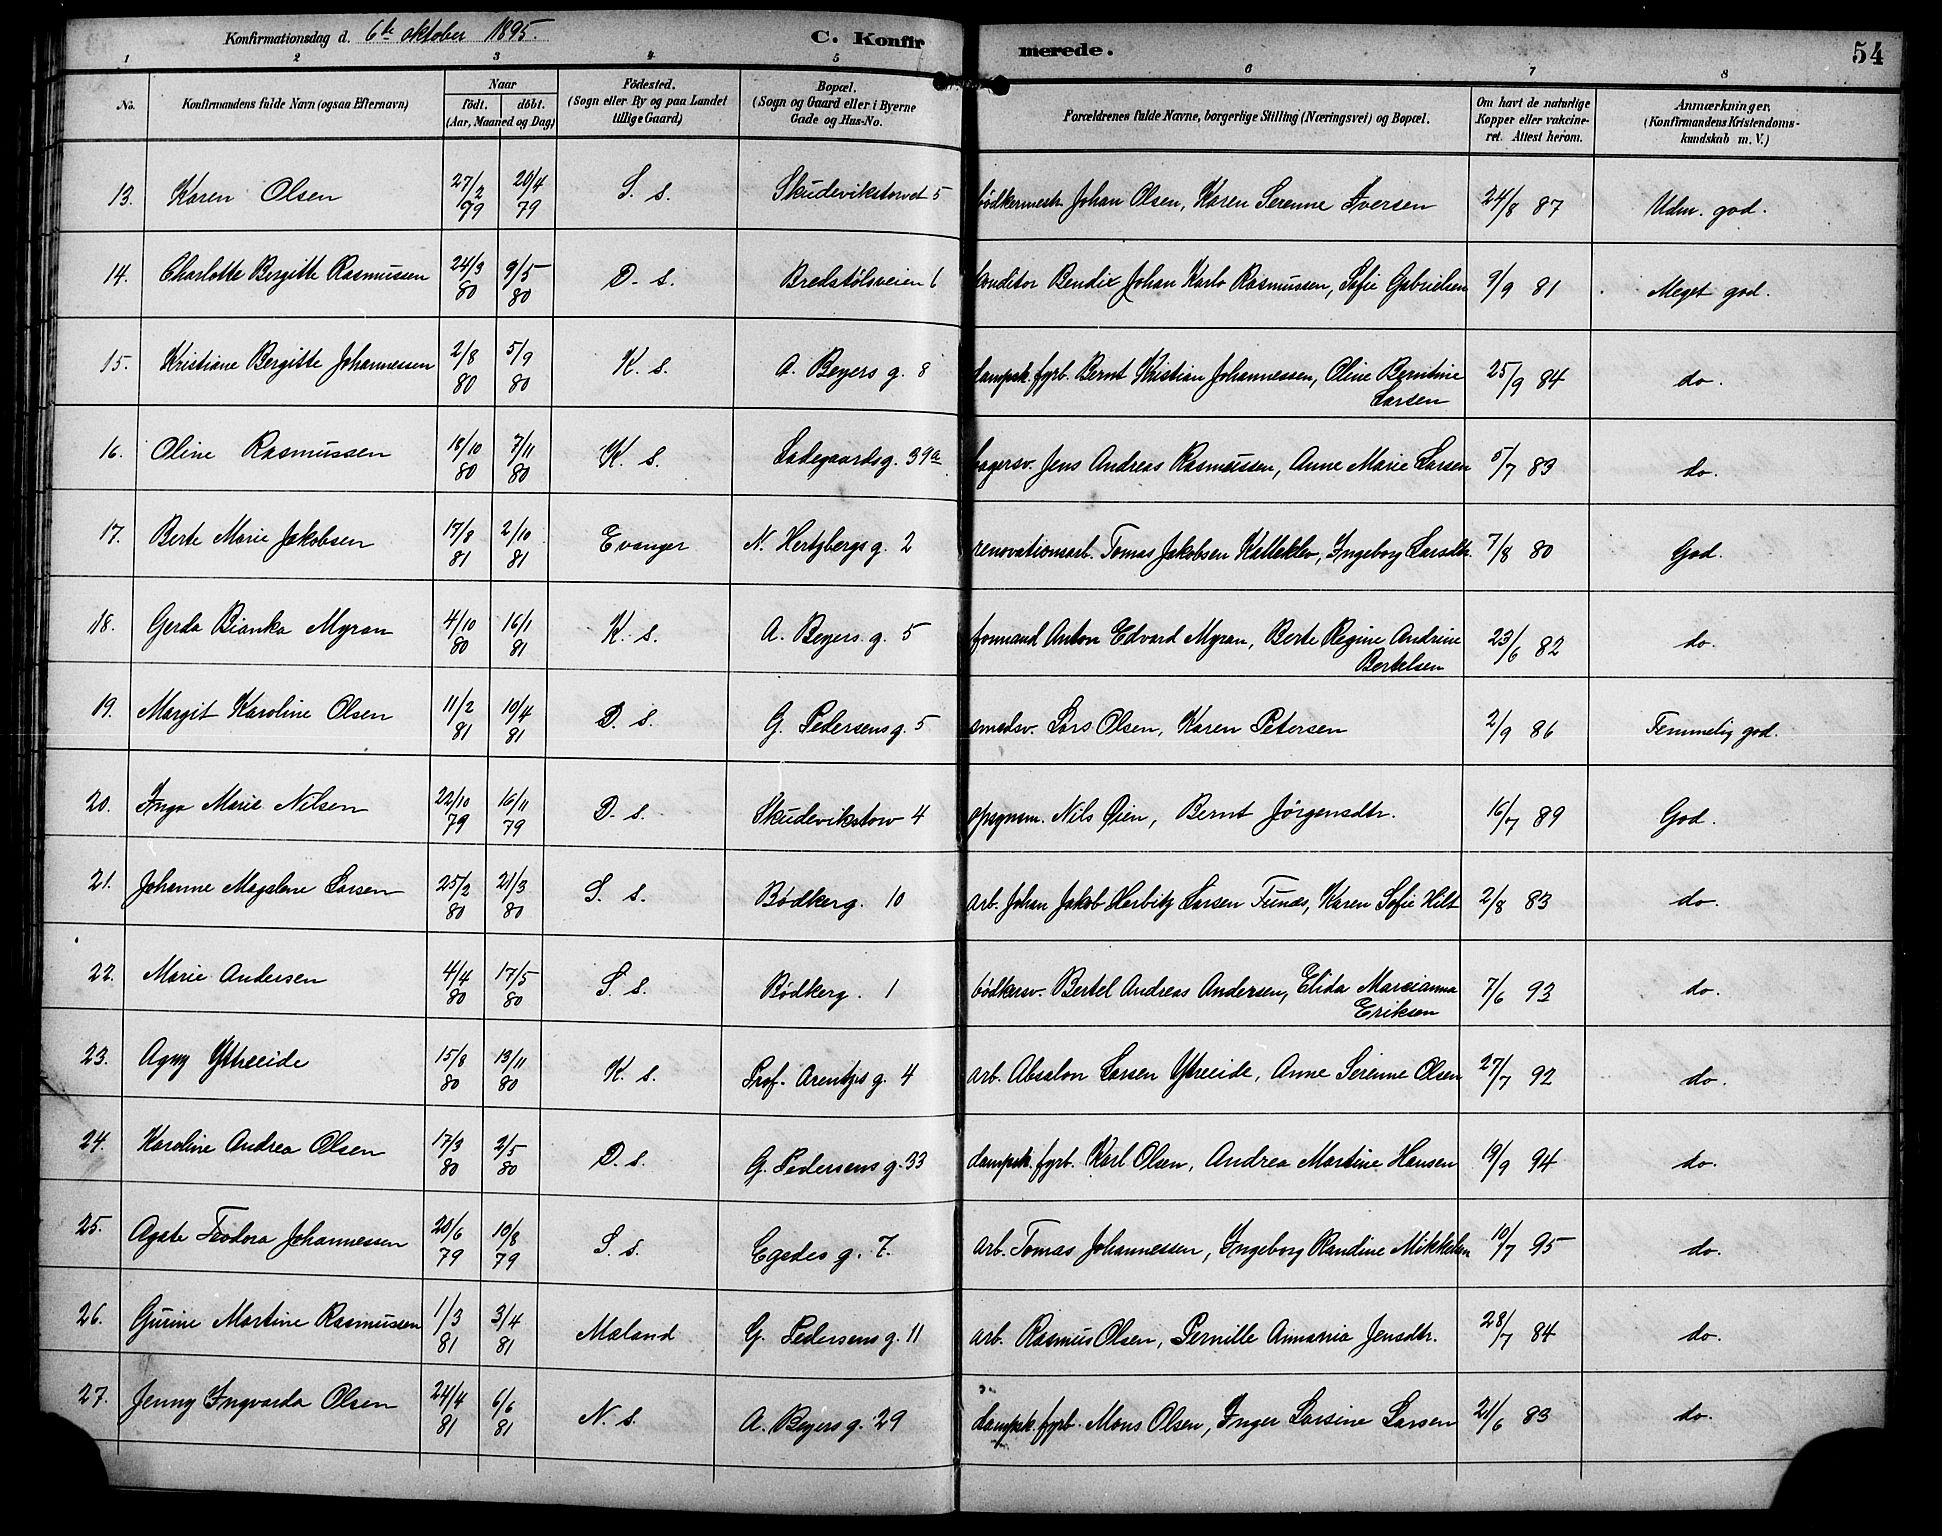 Konfirmationsdag d. 6te oktober 1895. C. Konfirmerede. 54
1 2 3 4 5 6 7 8
No. Konfirmandens fulde Navn (ogsaa Efternavn) Naar födt. döbt. (Aar, Maaned og Dag) Födested. (Sogn eller By og paa Landet tillige Gaard) Bopæl. (Sogn og Gaard eller i Byerne Gade og Hus-No. Forældrenes fulde Navne, borgerlige Stilling (Næringsvei) og Bopæl. Om havt de naturlige Kopper eller vakcineret. Attest herom. Anmærkninger. (Konfirmandens Kristendomskundskab m. V.)
13. Karen Olsen 27/2 79 20/4 79 S. s. Skudevikstorvet 5 bödkermestr. Johan Olsen, Karen Serenne Iversen 24/8 87 Udm. god.
14. Charlotte Bergitte Rasmussen 24/3 80 9/5 80 D. s. Bredstölsveien 6 konditor Bendix Johan Karlo Rasmussen, Sofie Gabrielsen 9/9 81 Meget god.
15. Kristiane Bergitte Johannessen 2/8 80 5/9 80 K. s. A. Beyers g. 8 dampsk. fyrb. Bernt Kristian Johannessen, Oline Berntine Larsen 25/9 84 do.
16. Oline Rasmussen 18/10 80 7/11 80 K. s. Ladegaardsg. 39a bagersv. Jens Andreas Rasmussen, Anne Marie Larsen 5/7 83 do.
17. Berte Marie Jakobsen 17/8 81 2/10 81 Evanger N. Hertzbergs g. 2 renovationsarb. Tomas Jakobsen Kalleklev, Ingeborg Larsdtr. 7/8 80 God.
18. Gerda Bianka Myran 4/10 80 16/1 81 K. s. A. Beyers g. 5 formand Anton Edvard Myran, Berte Regine Andrine Bertelsen 23/6 82 do.
19. Margit Karoline Olsen 11/2 81 10/4 81 D. s. G. Pedersens g. 5 smedsv. Lars Olsen, Karen Petersen 2/9 86 Temmelig god.
20. Inga Marie Nilsen 22/10 79 16/11 79 D. s. Skudevikstorv 4 opsynsm. Nils Øien, Bernt Jörgensdtr. 16/7 89 God.
21. Johanne Magdlene Larsen 25/2 80 21/3 80 S. s. Bödkerg. 10 arb. Johan Jakob Herbitz Larsen Funæs, Karen Sofie Hilt 2/8 83 do.
22. Marie Andersen 4/4 80 17/5 80 S. s. Bödkerg. 1 bödkersv. Bertel Andreas Andersen, Elida Marcianna Eriksen 7/6 93 do.
23. Agny Ytreeide 15/8 80 13/11 80 K. s. Prof. Arentzis g. 4 arb. Absalon Larsen Ytreeide, Anne Serenne Olsen 27/7 92 do.
24. Karoline Andrea Olsen 17/3 80 2/5 80 D. s. G. Pedersens g. 33 dampsk. fyrb. Karl Olsen, Andrea Martine Hansen 19/9 94 do.
25. Agate Feodora Johannessen 20/6 79 10/8 79 S. s. Egedes g. 7. arb. Tomas Johannessen, Ingeborg Randine Mikkelsen 10/7 95 do.
26. Gurine Martine Rasmussen 1/3 81 3/4 81 Mæland G. Pedersens g. 11 arb. Rasmus Olsen, Pernille Annania Jensdtr. 28/7 84 do.
27. Jenny Ingvarda Olsen 24/4 81 6/6 81 N. s. A. Beyers g. 29 dampsk. fyrb. Mons Olsen, Inger Larsine Larsen 21/6 83 do.